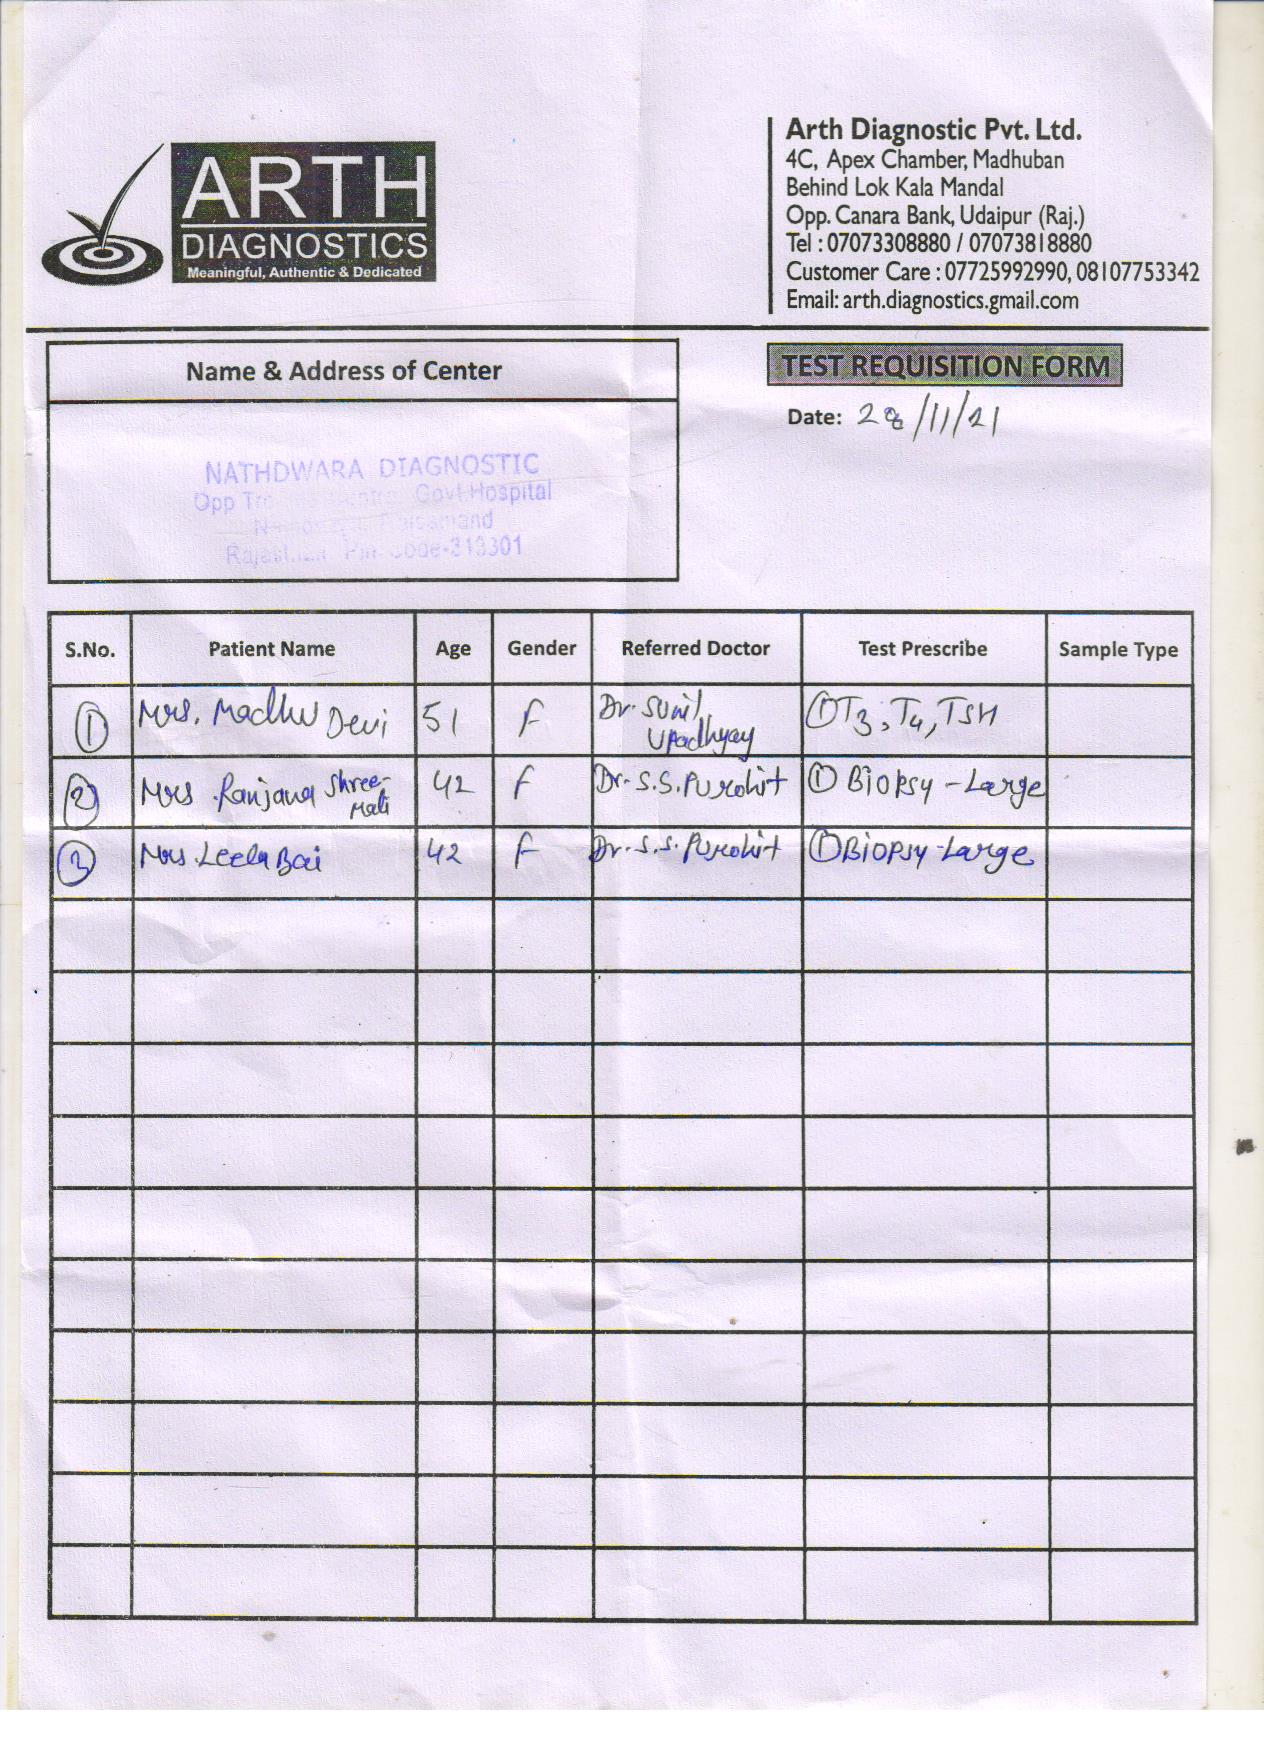 ARTH
DIAGNOSTICS
Meaningful, Authentic & Dedicated
Arth Diagnostic Pvt. Ltd.
4C, Apex Chamber, Madhuban
Behind Lok Kala Mandal
Opp. Canara Bank, Udaipur (Raj.)
Tel : 07073308880 / 07073818880
Customer Care : 07725992990, 08107753342
Email: arth.diagnostics.gmail.com
Name & Address of Center
TEST REQUISITION FORM
Date: 28/11/21
NATHDWARA DIAGNOSTIC
Opp Govt Hospital
Pin Code-313301
S.No. Patient Name Age Gender Referred Doctor Test Prescribe Sample Type
1 Mrs. Madhu Devi 51 F Dr. Sunil Upadhyay 1 T3, T4, TSH
2 Mrs. Ranjana Shree-Mali 42 F Dr. S.S. Purohit 1 Biopsy - Large
3 Mrs. Leela Bai 42 F Dr. S.S. Purohit 1 Biopsy - Large